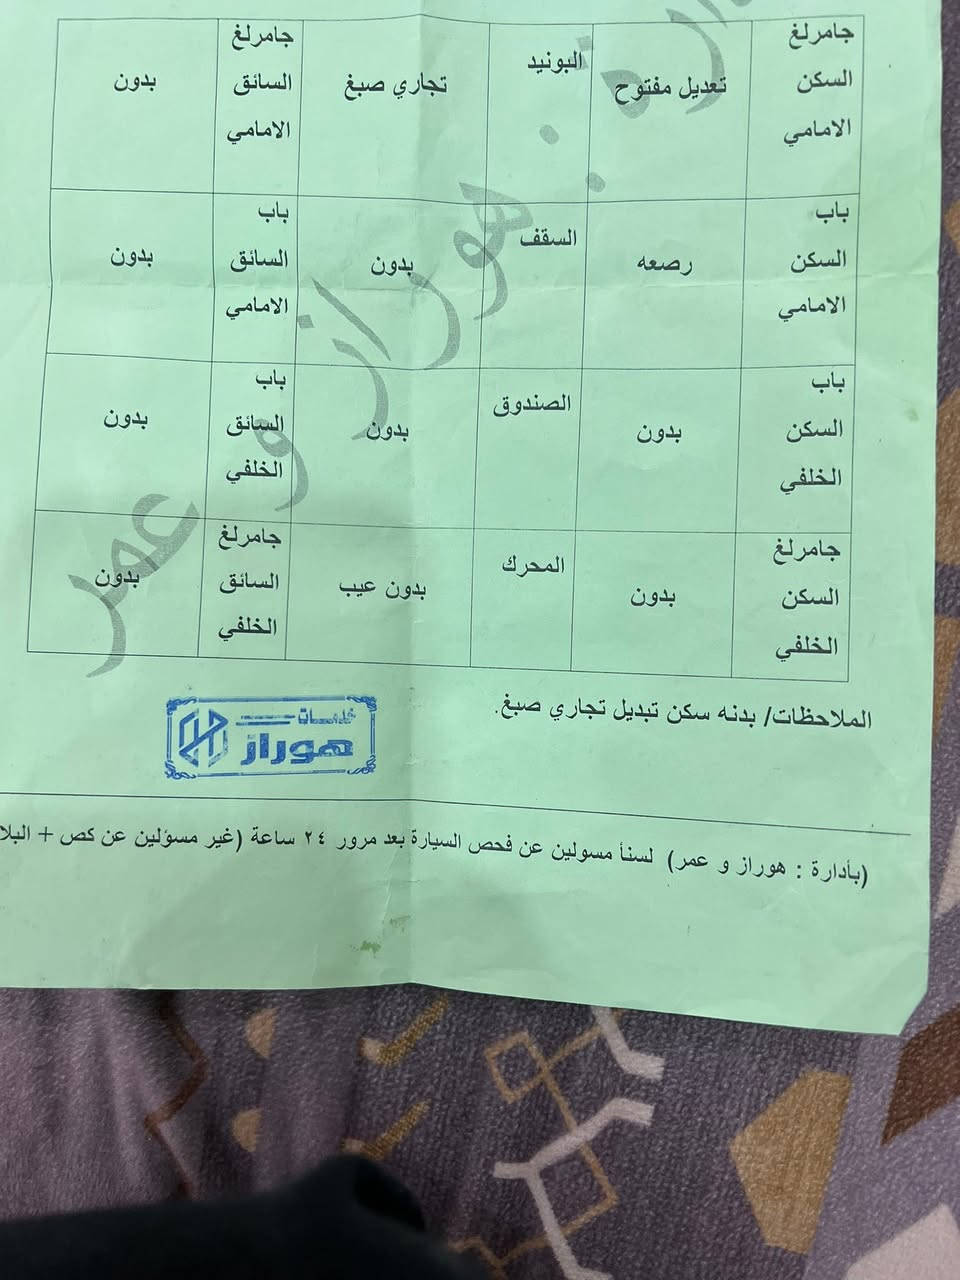 جامرلغ السكن الامامي
تعديل مفتوح
البونيد
تجاري صبغ
جامرلغ السائق الامامي
بدون
باب السكن الامامي
رصعه
السقف
بدون
باب السائق الامامي
بدون
باب السكن الخلفي
بدون
الصندوق
بدون
باب السائق الخلفي
بدون
جامرلغ السكن الخلفي
بدون
المحرك
بدون عيب
جامرلغ السائق الخلفي
بدون
هوراز و عمر
الملاحظات/ بدنه سكن تبديل تجاري صبغ.
خدمات
هوراز
(بأدارة : هوراز و عمر) لسنأ مسولين عن فحص السيارة بعد مرور ٢٤ ساعة (غير مسؤلين عن كص +